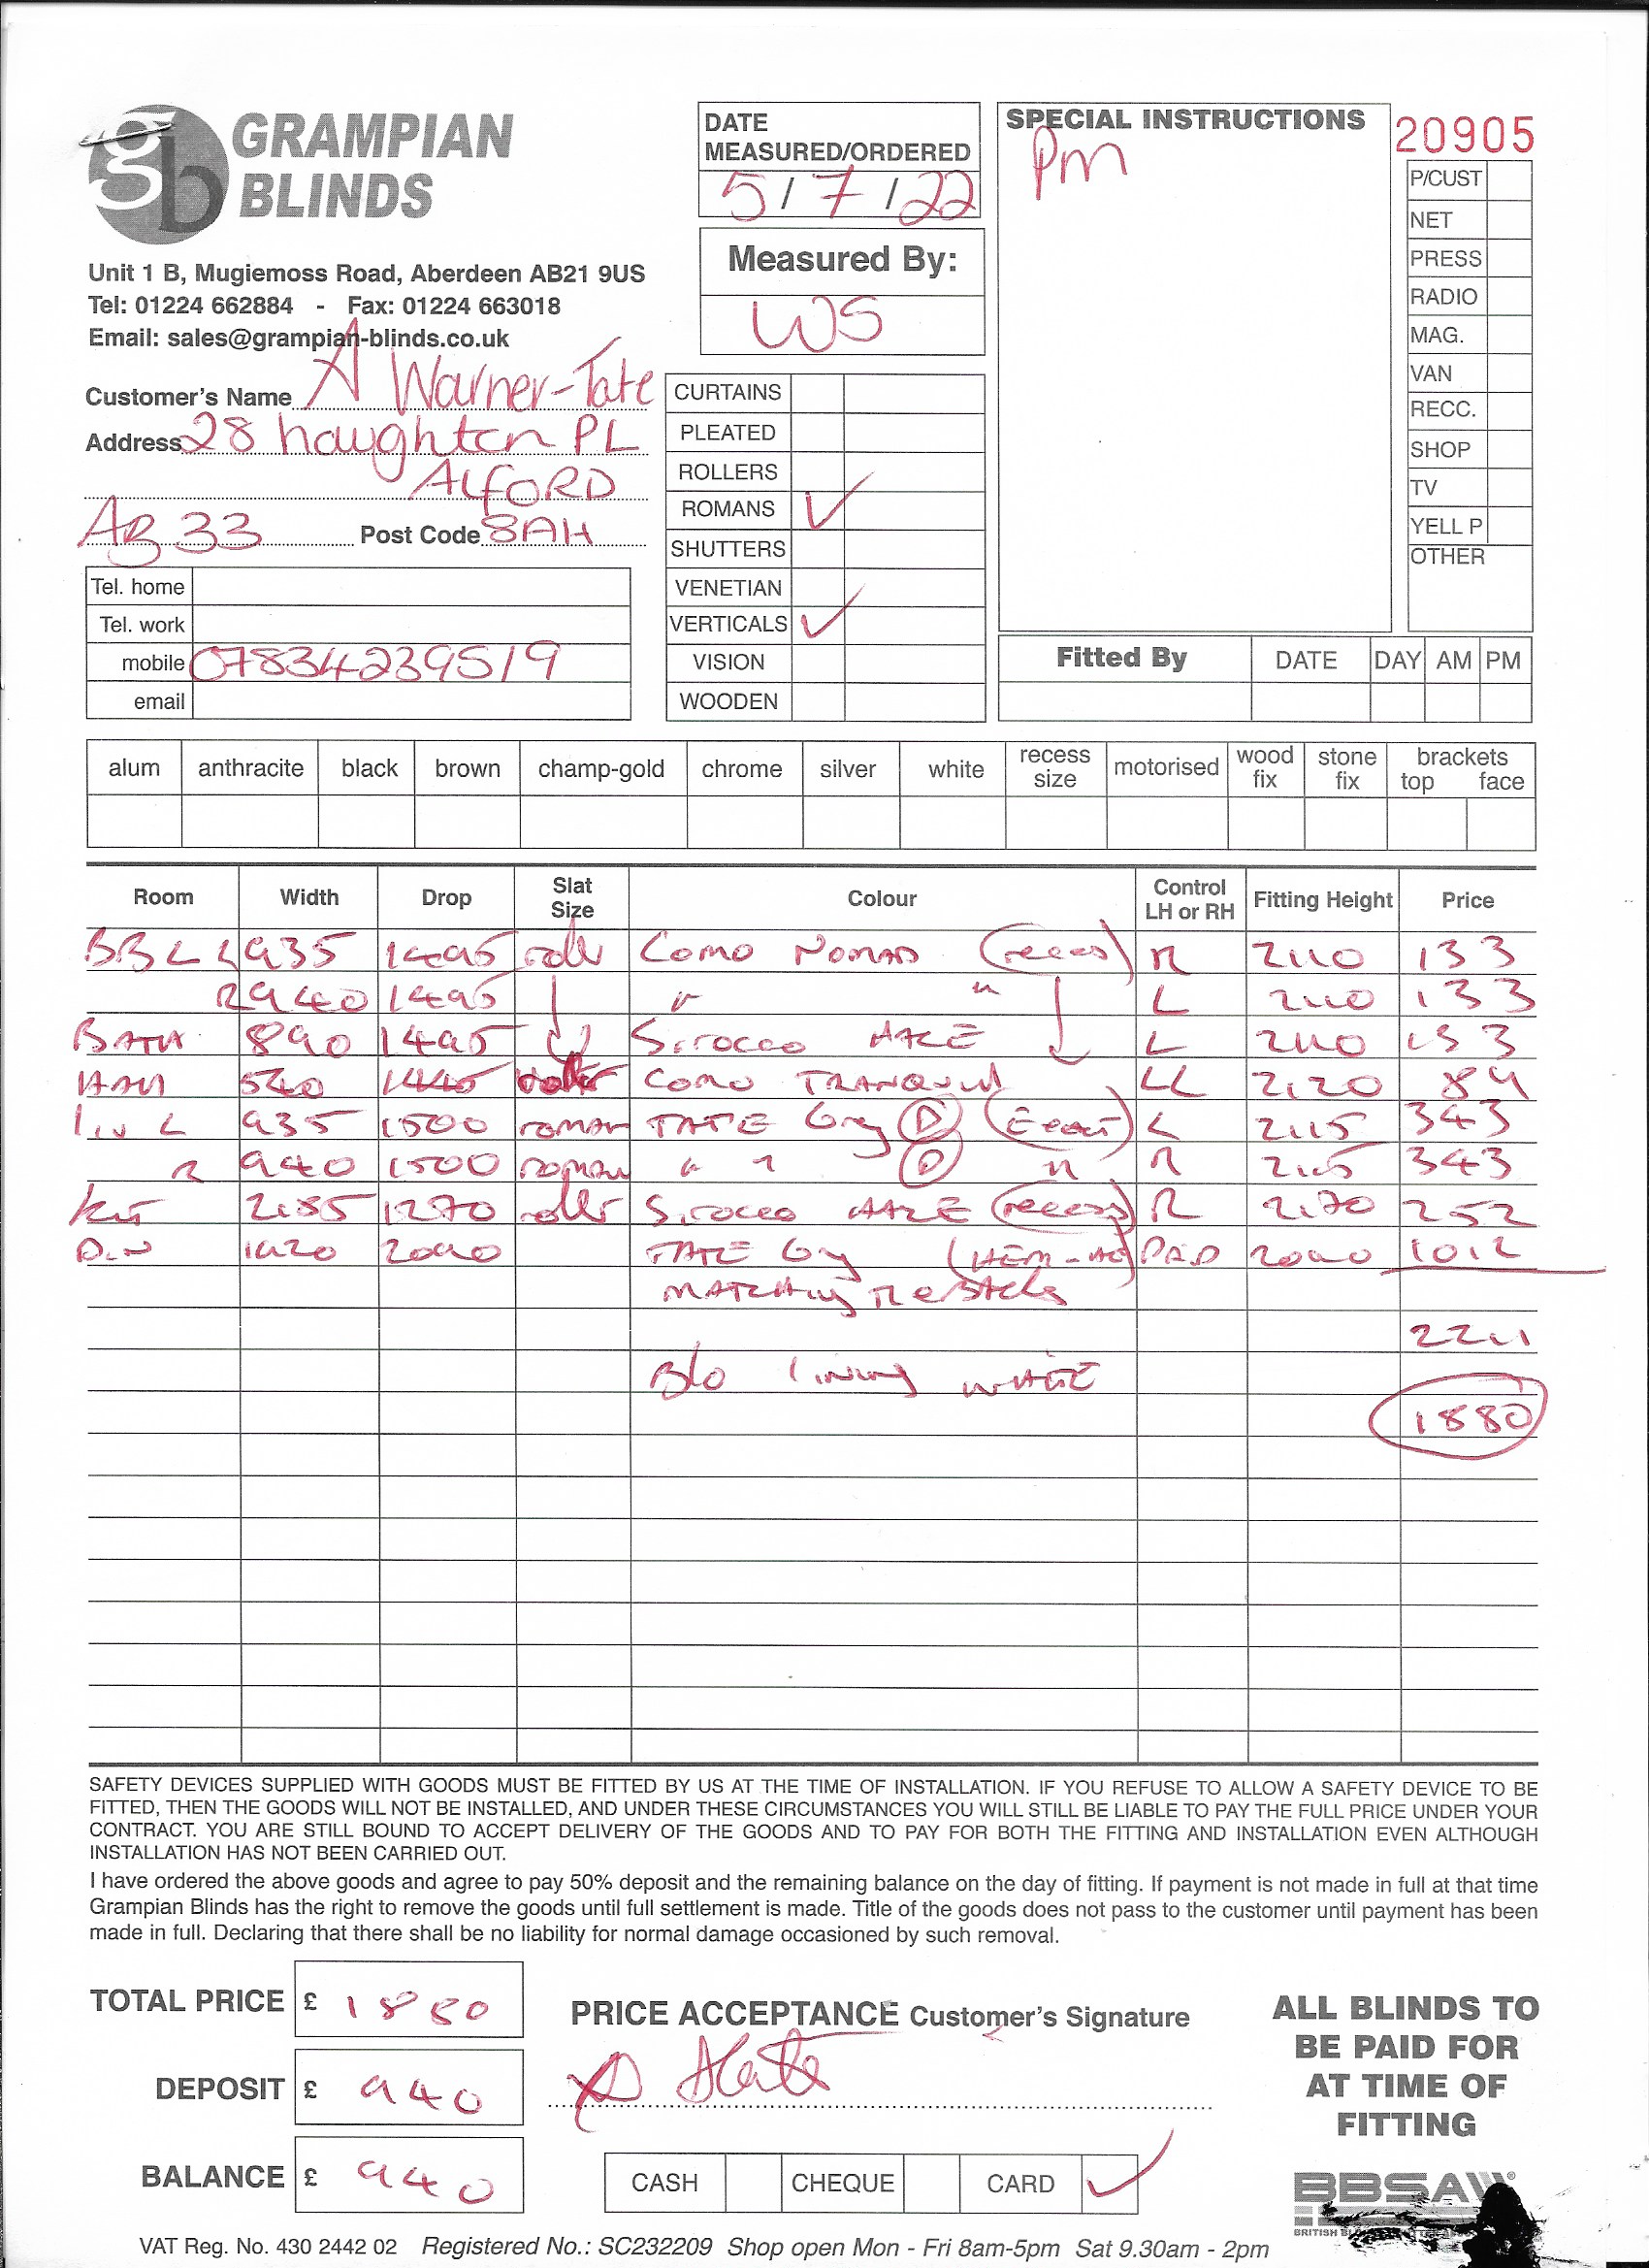 gb GRAMPIAN
BLINDS
Unit 1 B, Mugiemoss Road, Aberdeen AB21 9US
Tel: 01224 662884 - Fax: 01224 663018
Email: sales@grampian-blinds.co.uk
Customer's Name A Warner-Tate
Address 28 haughton PL
ALFORD
AB 33 Post Code 8AH
Tel. home
Tel. work
mobile 07834239519
email
DATE
MEASURED/ORDERED
5/7/22
Measured By:
WS
CURTAINS
PLEATED
ROLLERS
ROMANS ✓
SHUTTERS
VENETIAN
VERTICALS ✓
VISION
WOODEN
SPECIAL INSTRUCTIONS
Pm
20905
P/CUST
NET
PRESS
RADIO
MAG.
VAN
RECC.
SHOP
TV
YELL P
OTHER
Fitted By DATE DAY AM PM
alum anthracite black brown champ-gold chrome silver white recess size motorised wood fix stone fix brackets top face
Room Width Drop Slat Size Colour Control LH or RH Fitting Height Price
935 1495 Como NOMAD (recess) R 2110 133
R 940 1495 " " L 2110 133
BATH 890 1495 Sirocco HAZE L 2110
540 1440 Como TRANQUIL 2120 89
Liv L 935 1500 roman TATE Gry (D) L 2115 343
R 940 1500 roman " " (D) " R 343
Kit 2185 1270 roller Sirocco HAZE (recess) R 2170 252
Din 1920 2090 TATE Gry 2090 1012
MATCHING
B/O lining WHITE
1880
SAFETY DEVICES SUPPLIED WITH GOODS MUST BE FITTED BY US AT THE TIME OF INSTALLATION. IF YOU REFUSE TO ALLOW A SAFETY DEVICE TO BE
FITTED, THEN THE GOODS WILL NOT BE INSTALLED, AND UNDER THESE CIRCUMSTANCES YOU WILL STILL BE LIABLE TO PAY THE FULL PRICE UNDER YOUR
CONTRACT. YOU ARE STILL BOUND TO ACCEPT DELIVERY OF THE GOODS AND TO PAY FOR BOTH THE FITTING AND INSTALLATION EVEN ALTHOUGH
INSTALLATION HAS NOT BEEN CARRIED OUT.
I have ordered the above goods and agree to pay 50% deposit and the remaining balance on the day of fitting. If payment is not made in full at that time
Grampian Blinds has the right to remove the goods until full settlement is made. Title of the goods does not pass to the customer until payment has been
made in full. Declaring that there shall be no liability for normal damage occasioned by such removal.
TOTAL PRICE £ 1880
DEPOSIT £ 940
BALANCE £ 940
PRICE ACCEPTANCE Customer's Signature
CASH CHEQUE CARD ✓
ALL BLINDS TO
BE PAID FOR
AT TIME OF
FITTING
BBSA
BRITISH
VAT Reg. No. 430 2442 02 Registered No.: SC232209 Shop open Mon - Fri 8am-5pm Sat 9.30am - 2pm